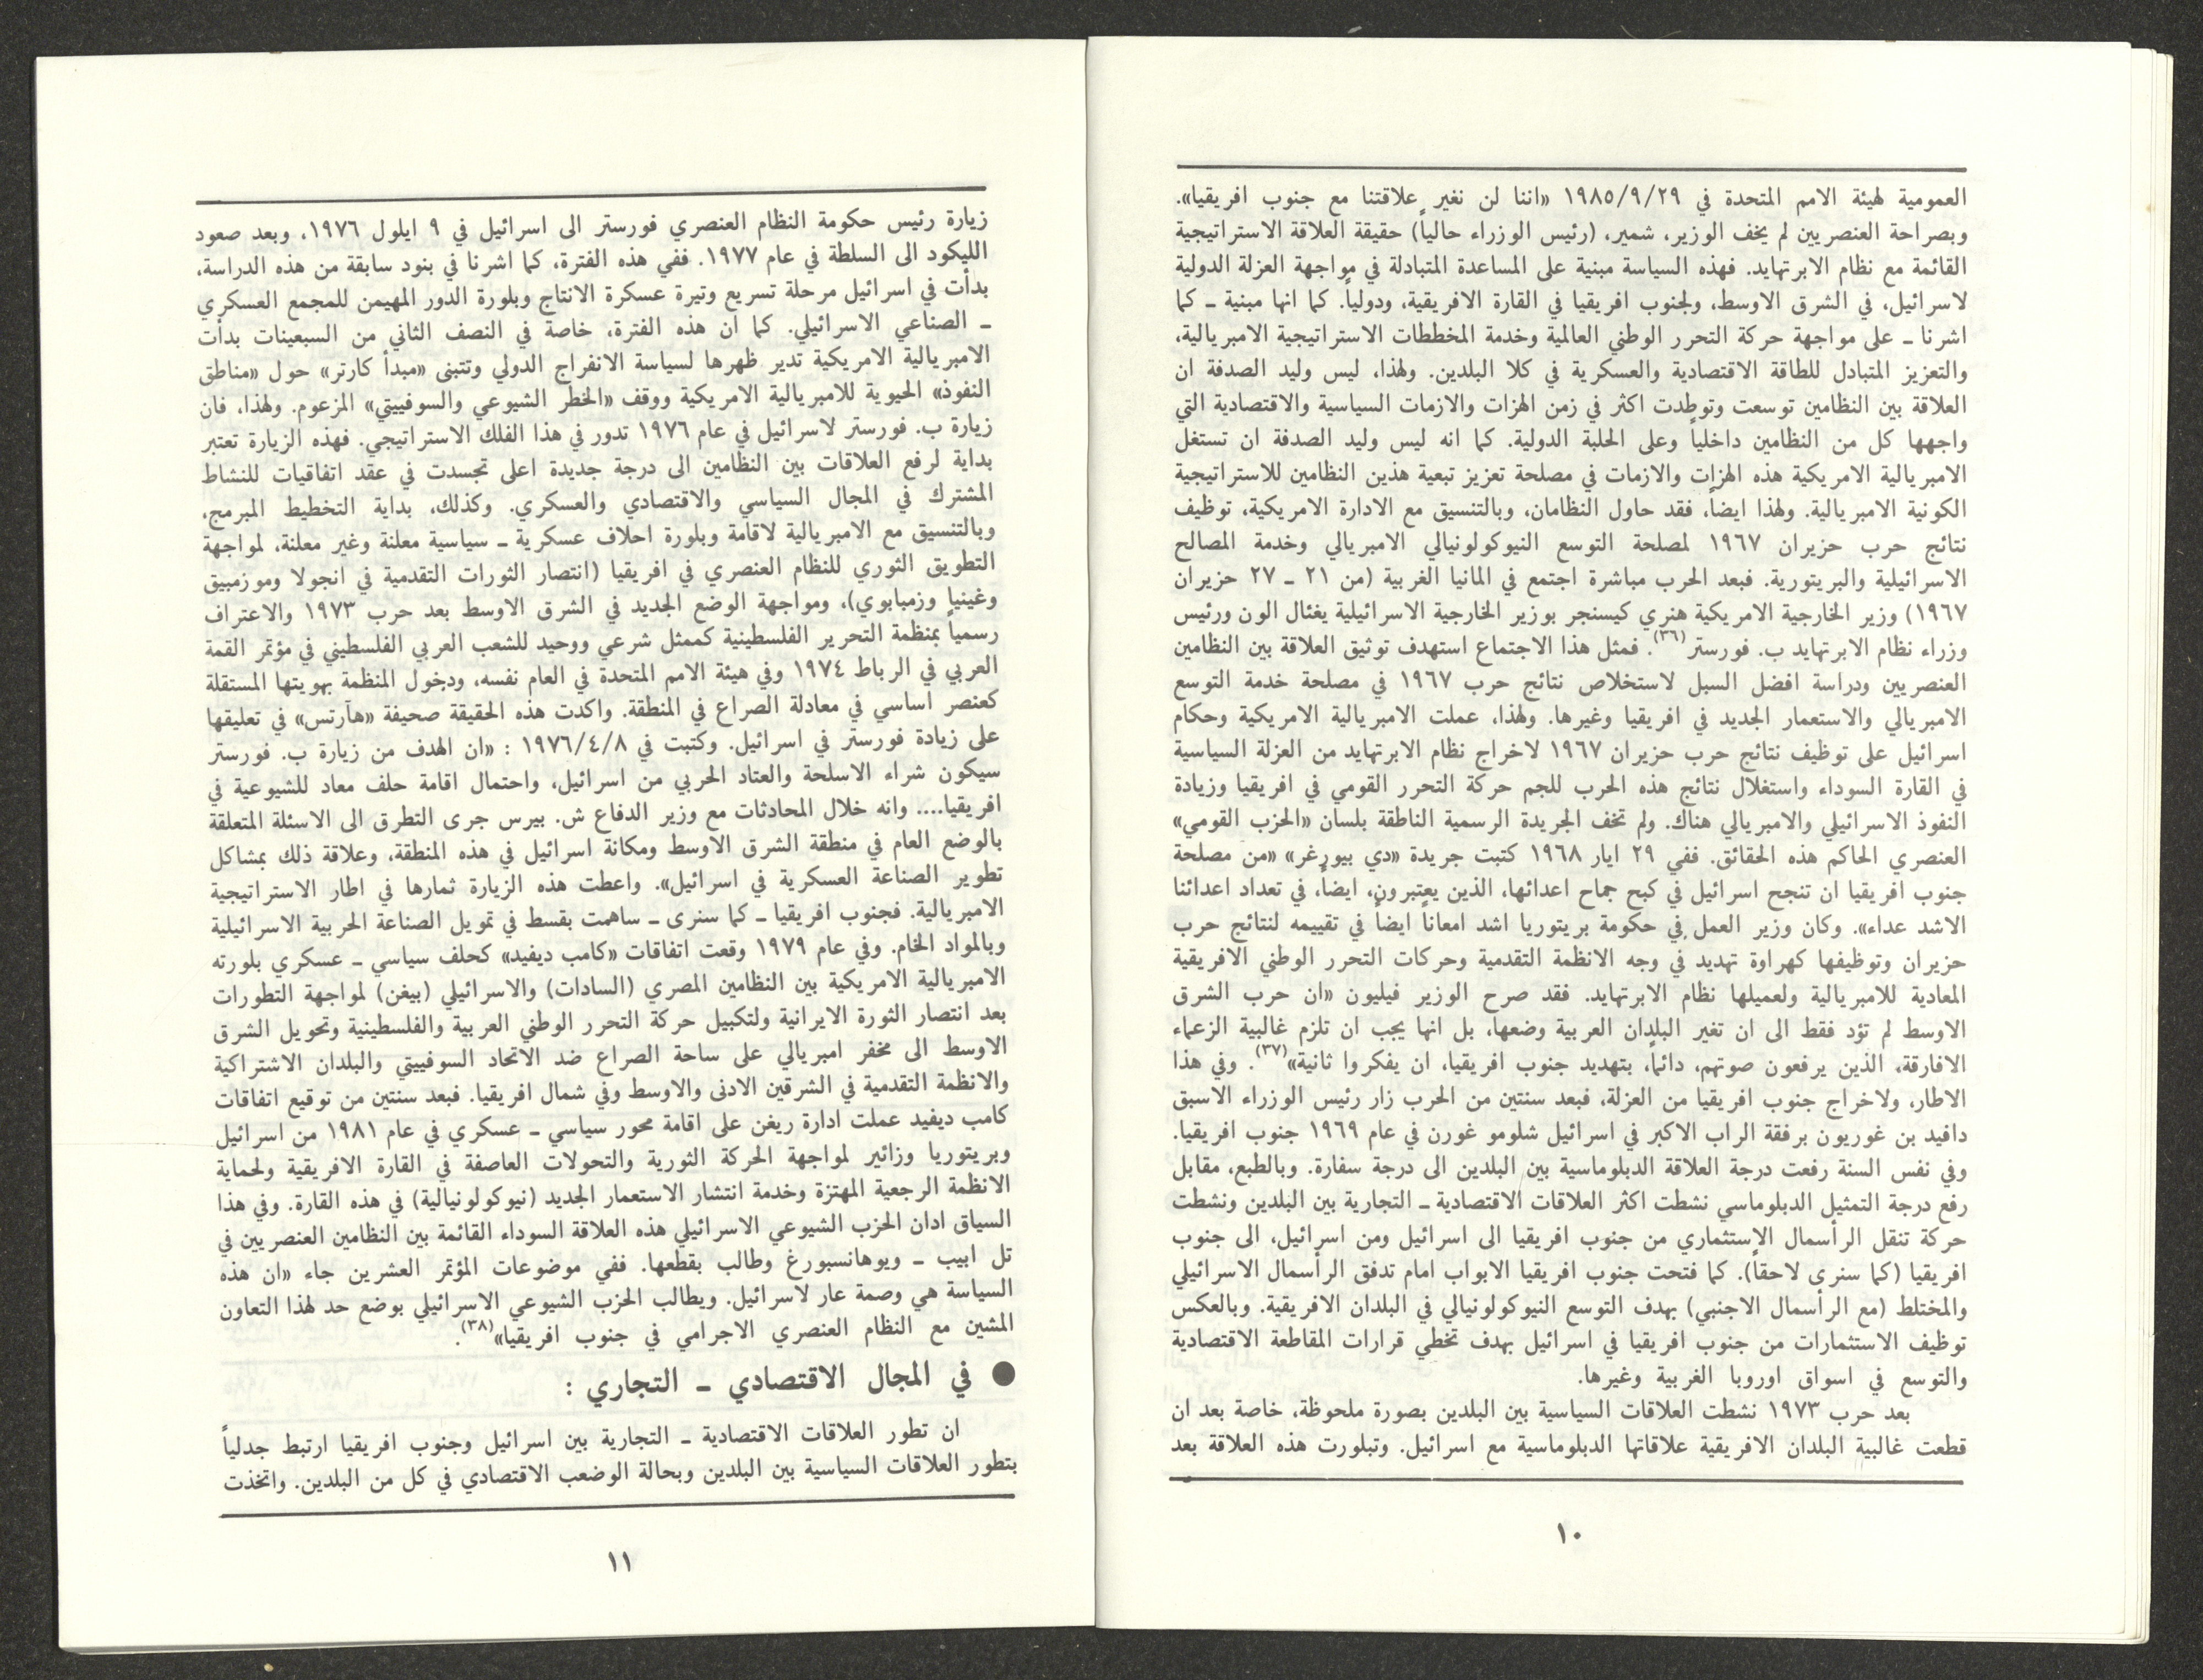 العمومية لهيئة الامم المتحدة في ١٩٨٥/٩/٢٩ «اننا لن نغير علاقتنا مع جنوب افريقيا».
وبصراحة العنصريين لم يخف الوزير، شمير، (رئيس الوزراء حالياً) حقيقة العلاقة الاستراتيجية
القائمة مع نظام الابرتهايد. فهذه السياسة مبنية على المساعدة المتبادلة في مواجهة العزلة الدولية
لاسرائيل، في الشرق الاوسط، ولجنوب افريقيا في القارة الافريقية، ودولياً. كما انها مبنية ـ كما
اشرنا ـ على مواجهة حركة التحرر الوطني العالمية وخدمة المخططات الاستراتيجية الامبريالية،
والتعزيز المتبادل للطاقة الاقتصادية والعسكرية في كلا البلدين. ولهذا، ليس وليد الصدفة ان
العلاقة بين النظامين توسعت وتوطدت اكثر في زمن الهزات والازمات السياسية والاقتصادية التي
واجهها كل من النظامين داخلياً وعلى الحلبة الدولية. كما انه ليس وليد الصدفة ان تستغل
الامبريالية الامريكية هذه الهزات والازمات في مصلحة تعزيز تبعية هذين النظامين للاستراتيجية
الكونية الامبريالية. ولهذا ايضاً، فقد حاول النظامان، وبالتنسيق مع الادارة الامريكية، توظيف
نتائج حرب حزيران ١٩٦٧ لمصلحة التوسع النيوكولونيالي الامبريالي وخدمة المصالح
الاسرائيلية والبريتورية. فبعد الحرب مباشرة اجتمع في المانيا الغربية (من ٢١ ـ ٢٧ حزيران
١٩٦٧) وزير الخارجية الامريكية هنري كيسنجر بوزير الخارجية الاسرائيلية يغئال الون ورئيس
وزراء نظام الابرتهايد ب. فورستر(٣٦). فمثل هذا الاجتماع استهدف توثيق العلاقة بين النظامين
العنصريين ودراسة افضل السبل لاستخلاص نتائج حرب ١٩٦٧ في مصلحة خدمة التوسع
الامبريالي والاستعمار الجديد في افريقيا وغيرها. ولهذا، عملت الامبريالية الامريكية وحكام
اسرائيل على توظيف نتائج حرب حزيران ١٩٦٧ لاخراج نظام الابرتهايد من العزلة السياسية
في القارة السوداء واستغلال نتائج هذه الحرب للجم حركة التحرر القومي في افريقيا وزيادة
النفوذ الاسرائيلي والامبريالي هناك. ولم تخف الجريدة الرسمية الناطقة بلسان «الحزب القومي»
العنصري الحاكم هذه الحقائق. ففي ٢٩ ايار ١٩٦٨ كتبت جريدة «دي بيورغر» «من مصلحة
جنوب افريقيا ان تنجح اسرائيل في كبح جماح اعدائها، الذين يعتبرون، ايضاً، في تعداد اعدائنا
الاشد عداء». وكان وزير العمل في حكومة بريتوريا اشد امعاناً ايضاً في تقييمه لنتائج حرب
حزيران وتوظيفها كهراوة تهديد في وجه الانظمة التقدمية وحركات التحرر الوطني الافريقية
المعادية للامبريالية ولعميلها نظام الابرتهايد. فقد صرح الوزير فيليون «ان حرب الشرق
الاوسط لم تؤد فقط الى ان تغير البلدان العربية وضعها، بل انها يجب ان تلزم غالبية الزعماء
الافارقة، الذين يرفعون صوتهم، دائماً، بتهديد جنوب افريقيا، ان يفكروا ثانية»(٣٧). وفي هذا
الاطار، ولاخراج جنوب افريقيا من العزلة، فبعد سنتين من الحرب زار رئيس الوزراء الاسبق
دافيد بن غوريون برفقة الراب الاكبر في اسرائيل شلومو غورن في عام ١٩٦٩ جنوب افريقيا.
وفي نفس السنة رفعت درجة العلاقة الدبلوماسية بين البلدين الى درجة سفارة. وبالطبع، مقابل
رفع درجة التمثيل الدبلوماسي نشطت اكثر العلاقات الاقتصادية ـ التجارية بين البلدين ونشطت
حركة تنقل الرأسمال الاستثماري من جنوب افريقيا الى اسرائيل ومن اسرائيل، الى جنوب
افريقيا (كما سنرى لاحقاً). كما فتحت جنوب افريقيا الابواب امام تدفق الرأسمال الاسرائيلي
والمختلط (مع الرأسمال الاجنبي) بهدف التوسع النيوكولونيالي في البلدان الافريقية. وبالعكس
توظيف الاستثمارات من جنوب افريقيا في اسرائيل بهدف تخطي قرارات المقاطعة الاقتصادية
والتوسع في اسواق اوروبا الغربية وغيرها.
بعد حرب ١٩٧٣ نشطت العلاقات السياسية بين البلدين بصورة ملحوظة، خاصة بعد ان
قطعت غالبية البلدان الافريقية علاقاتها الدبلوماسية مع اسرائيل. وتبلورت هذه العلاقة بعد
١٠
زيارة رئيس حكومة النظام العنصري فورستر الى اسرائيل في ٩ ايلول ١٩٧٦، وبعد صعود
الليكود الى السلطة في عام ١٩٧٧. ففي هذه الفترة، كما اشرنا في بنود سابقة من هذه الدراسة،
بدأت في اسرائيل مرحلة تسريع وتيرة عسكرة الانتاج وبلورة الدور المهيمن للمجمع العسكري
ـ الصناعي الاسرائيلي. كما ان هذه الفترة، خاصة في النصف الثاني من السبعينات بدأت
الامبريالية الامريكية تدير ظهرها لسياسة الانفراج الدولي وتتبنى «مبدأ كارتر» حول «مناطق
النفوذ» الحيوية للامبريالية الامريكية ووقف «الخطر الشيوعي والسوفييتي» المزعوم. ولهذا، فان
زيارة ب. فورستر لاسرائيل في عام ١٩٧٦ تدور في هذا الفلك الاستراتيجي. فهذه الزيارة تعتبر
بداية لرفع العلاقات بين النظامين الى درجة جديدة اعلى تجسدت في عقد اتفاقيات للنشاط
المشترك في المجال السياسي والاقتصادي والعسكري. وكذلك، بداية التخطيط المبرمج،
وبالتنسيق مع الامبريالية لاقامة وبلورة احلاف عسكرية ـ سياسية معلنة وغير معلنة، لمواجهة
التطويق الثوري للنظام العنصري في افريقيا (انتصار الثورات التقدمية في انجولا وموزمبيق
وغينيا وزمبابوي)، ومواجهة الوضع الجديد في الشرق الاوسط بعد حرب ١٩٧٣ والاعتراف
رسمياً بمنظمة التحرير الفلسطينية كممثل شرعي ووحيد للشعب العربي الفلسطيني في مؤتمر القمة
العربي في الرباط ١٩٧٤ وفي هيئة الامم المتحدة في العام نفسه، ودخول المنظمة بهويتها المستقلة
كعنصر اساسي في معادلة الصراع في المنطقة. واكدت هذه الحقيقة صحيفة «هآرتس» في تعليقها
على زيادة فورستر في اسرائيل. وكتبت في ١٩٧٦/٤/٨ : «ان الهدف من زيارة ب. فورستر
سيكون شراء الاسلحة والعتاد الحربي من اسرائيل، واحتمال اقامة حلف معاد للشيوعية في
افريقيا.... وانه خلال المحادثات مع وزير الدفاع ش. بيرس جرى التطرق الى الاسئلة المتعلقة
بالوضع العام في منطقة الشرق الاوسط ومكانة اسرائيل في هذه المنطقة، وعلاقة ذلك بمشاكل
تطوير الصناعة العسكرية في اسرائيل». واعطت هذه الزيارة ثمارها في اطار الاستراتيجية
الامبريالية. فجنوب افريقيا ـ كما سنرى ـ ساهمت بقسط في تمويل الصناعة الحربية الاسرائيلية
وبالمواد الخام. وفي عام ١٩٧٩ وقعت اتفاقات «كامب ديفيد» كحلف سياسي ـ عسكري بلورته
الامبريالية الامريكية بين النظامين المصري (السادات) والاسرائيلي (بيغن) لمواجهة التطورات
بعد انتصار الثورة الايرانية ولتكبيل حركة التحرر الوطني العربية والفلسطينية وتحويل الشرق
الاوسط الى مخفر امبريالي على ساحة الصراع ضد الاتحاد السوفييتي والبلدان الاشتراكية
والانظمة التقدمية في الشرقين الادنى والاوسط وفي شمال افريقيا. فبعد سنتين من توقيع اتفاقات
كامب ديفيد عملت ادارة ريغن على اقامة محور سياسي ـ عسكري في عام ١٩٨١ من اسرائيل
وبريتوريا وزائير لمواجهة الحركة الثورية والتحولات العاصفة في القارة الافريقية ولحماية
الانظمة الرجعية المهتزة وخدمة انتشار الاستعمار الجديد (نيوكولونيالية) في هذه القارة. وفي هذا
السياق ادان الحزب الشيوعي الاسرائيلي هذه العلاقة السوداء القائمة بين النظامين العنصريين في
تل ابيب ـ ويوهانسبورغ وطالب بقطعها. ففي موضوعات المؤتمر العشرين جاء «ان هذه
السياسة هي وصمة عار لاسرائيل. ويطالب الحزب الشيوعي الاسرائيلي بوضع حد لهذا التعاون
المشين مع النظام العنصري الاجرامي في جنوب افريقيا»(٣٨).
● في المجال الاقتصادي ـ التجاري :
ان تطور العلاقات الاقتصادية ـ التجارية بين اسرائيل وجنوب افريقيا ارتبط جدلياً
بتطور العلاقات السياسية بين البلدين وبحالة الوضعب الاقتصادي في كل من البلدين. واتخذت
١١